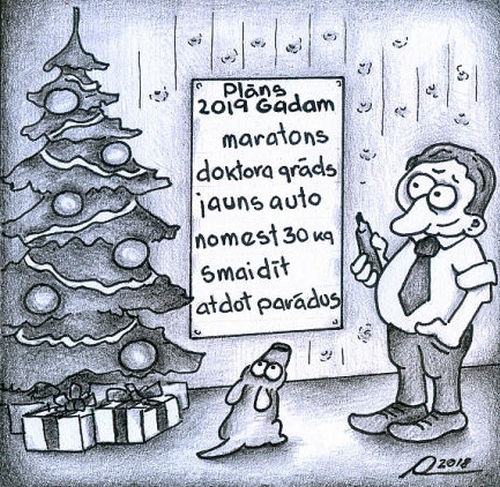 Plāns
2019 Gadam
maratons
doktora grāds
jauns auto
nomest 30 kg
smaidīt
atdot parādus
2018